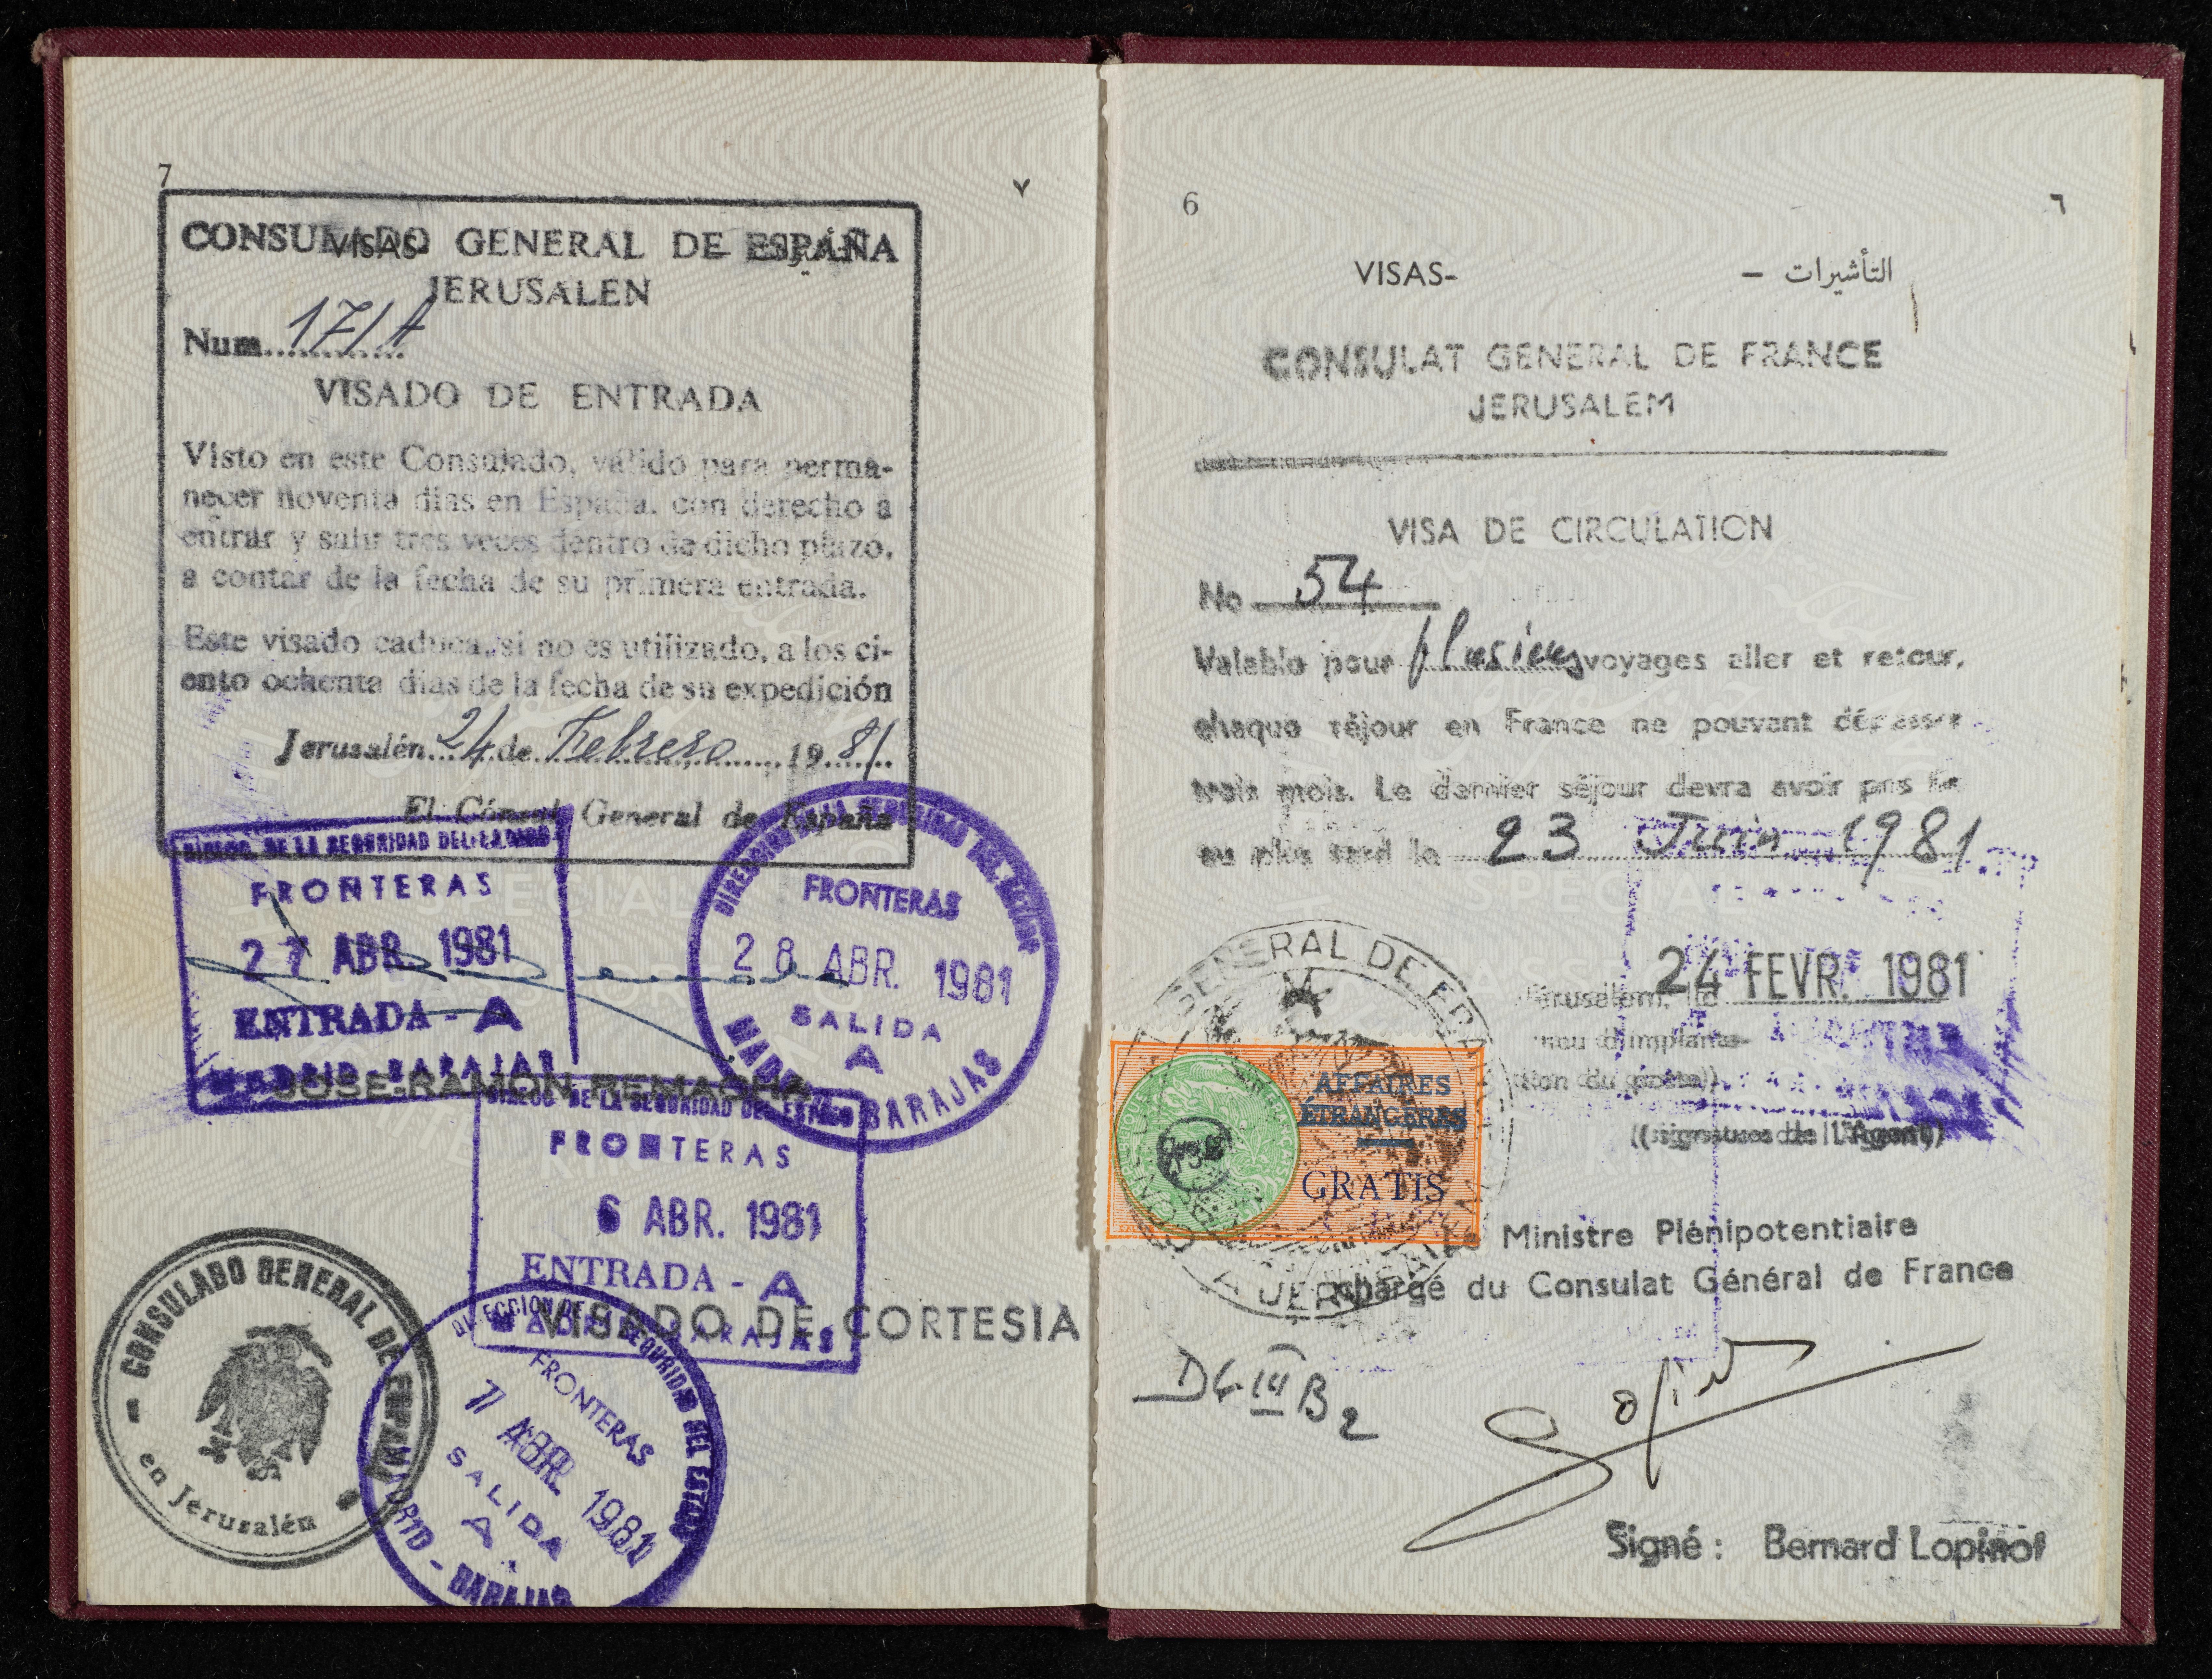 7
٧
VISAS-
CONSULADO GENERAL DE ESPAÑA
JERUSALEN
Num. 171/A
VISADO DE ENTRADA
Visto en este Consulado, válido para perma-
necer noventa dias en España, con derecho a
entrar y salir tres veces dentro de dicho plazo,
a contar de la fecha de su primera entrada.
Este visado caduca, si no es utilizado, a los ci-
ento ochenta dias de la fecha de su expedición
Jerusalén 24 de Febrero 1981
El Cónsul General de España
DIRECC. DE LA SEGURIDAD DEL ESTADO
FRONTERAS
27 ABR. 1981
ENTRADA - A
MADRID - BARAJAS
DIRECCION DE LA SEGURIDAD DEL ESTADO
FRONTERAS
28 ABR. 1981
SALIDA
A
MADRID BARAJAS
JOSE-RAMON REMACHA
DIRECC. DE LA SEGURIDAD DEL ESTADO
FRONTERAS
6 ABR. 1981
ENTRADA - A
MADRID BARAJAS
VISADO DE CORTESIA
CONSULADO GENERAL DE ESPAÑA
en Jerusalén
DIRECCION DE LA SEGURIDAD DEL ESTADO
FRONTERAS
7 ABR. 1981
SALIDA
A
MADRID - BARAJAS
6
٦
VISAS-
التأشيرات -
CONSULAT GENERAL DE FRANCE
JERUSALEM
VISA DE CIRCULATION
No 54
Valable pour plusieurs voyages aller et retour,
chaque séjour en France ne pouvant dépasser
trois mois. Le dernier séjour devra avoir pris fin
au plus tard le 23 Juin 1981
SPECIAL
Jérusalem, le 24 FEVR. 1981
(lieu d'implanta-
tion du poste)
(signature de l'Agent)
GENERAL DE FRANCE
A JERUSALEM
AFFAIRES
ÉTRANGÈRES
GRATIS
Le Ministre Plénipotentiaire
chargé du Consulat Général de France
DG III B2
Signé : Bernard Lopinot